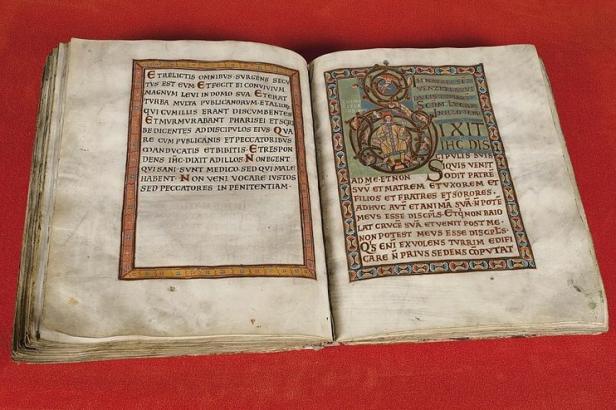 ET RELICTIS OMNIBUS · SURGENS SECU
TUS EST EUM · ET FECIT EI CONVIVIUM
MAGNUM LEVI IN DOMO SUA · ET ERAT
TURBA MULTA PUBLICANORUM · ET ALIORU
QUI CUM ILLIS ERANT DISCUMBENTES
ET MURMURABANT PHARISEI ET SCRI
BE DICENTES AD DISCIPULOS EIUS · QUA
RE CUM PUBLICANIS ET PECCATORIBUS
MANDUCATIS ET BIBITIS · ET RESPON
DENS IHC · DIXIT AD ILLOS · NON EGENT
QUI SANI SUNT MEDICO · SED QUI MALE
HABENT · NON VENI VOCARE IUSTOS
SED PECCATORES IN PENITENTIAM ·
DIXIT
IHC DIS
CIPULIS SUIS
SI QUIS VENIT
AD ME · ET NON ODIT PATRE
SUU ET MATREM ET UXOREM ET
FILIOS ET FRATRES ET SORORES ·
ADHUC AUT ET ANIMA SUA · N POTE
MEUS ESSE DISCPLS · ET Q N BAIO
LAT CRUCE SUA ET VENIT POST ME ·
NON POTEST MEUS ESSE DISCPLS ·
QS ENI EX VOLENS TURRIM EDIFI
CARE N PRIUS SEDENS COPUTAT